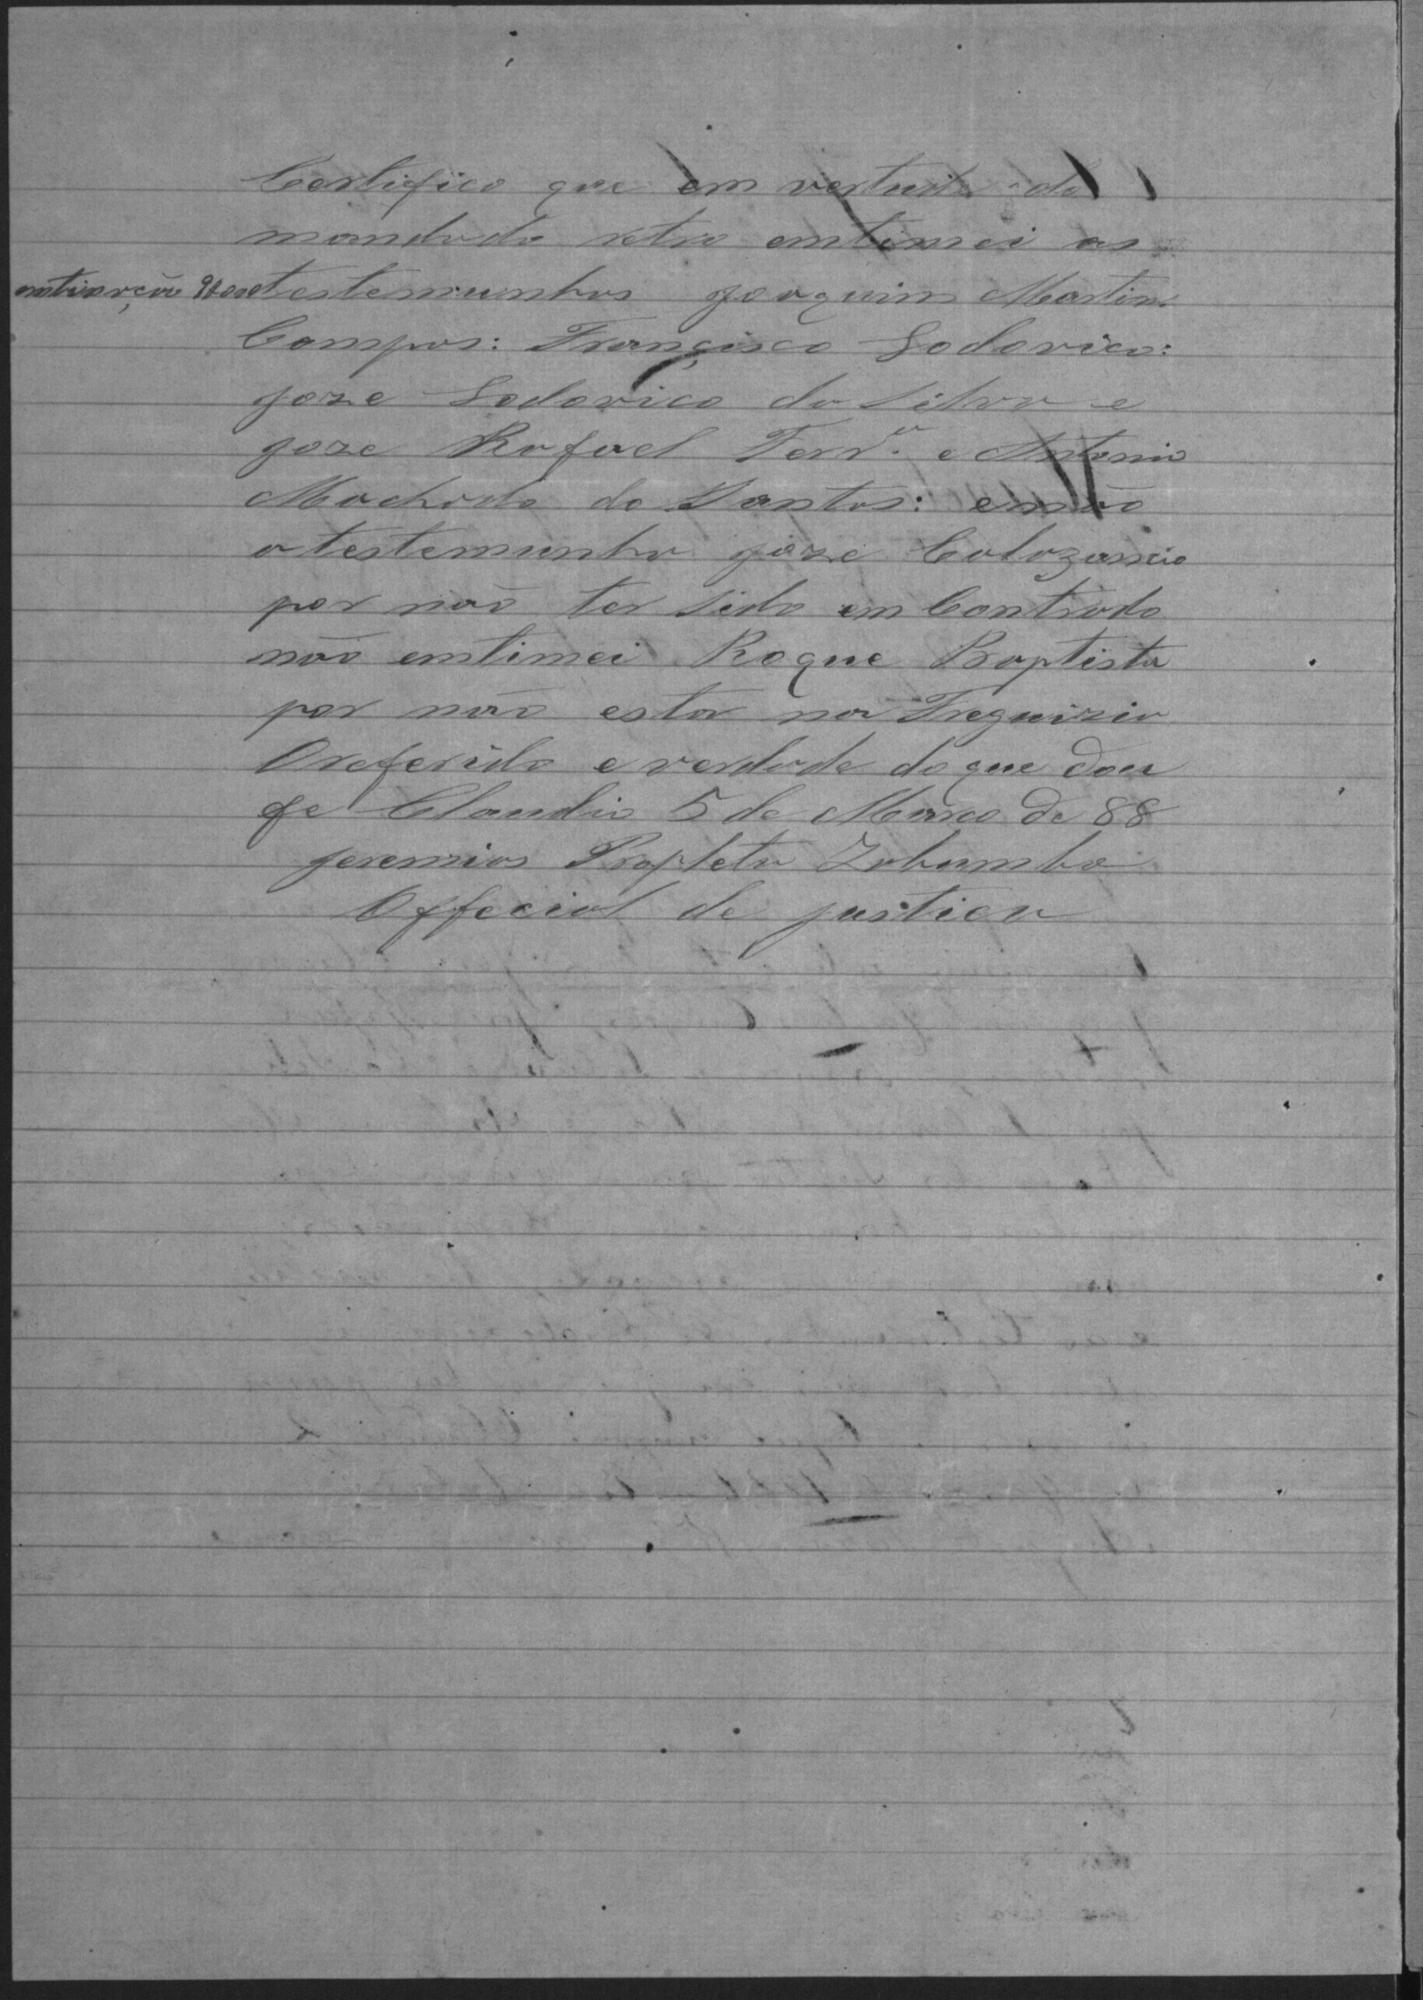 Certifico que em vertude do
mandado retro emtimei as
testemunhas Joaquim Martins
Campos: Francisco Lodovico:
Joze Lodovico da Silva e
Joze Rafael Ferr.ª e Antonio
Machado do Santos: e não
a testemunha Joze Calazancio
por não ter Sido em Contrado
não emtimei Roque Baptista
por não estar na Freguizia
O referido e verdade do que dou
fe Claudio 5 de Março de 88
Jeremias Propheta Zabumba
Offecial de justica